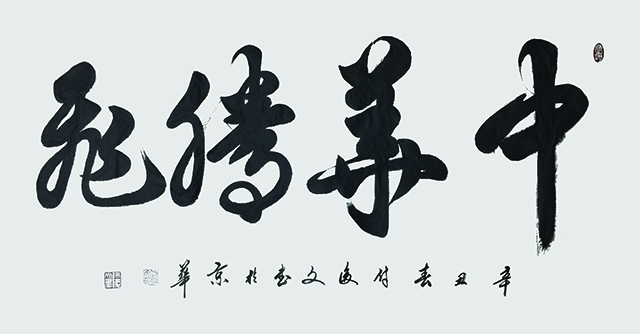 中華騰飛
辛丑春付俊文書於京華